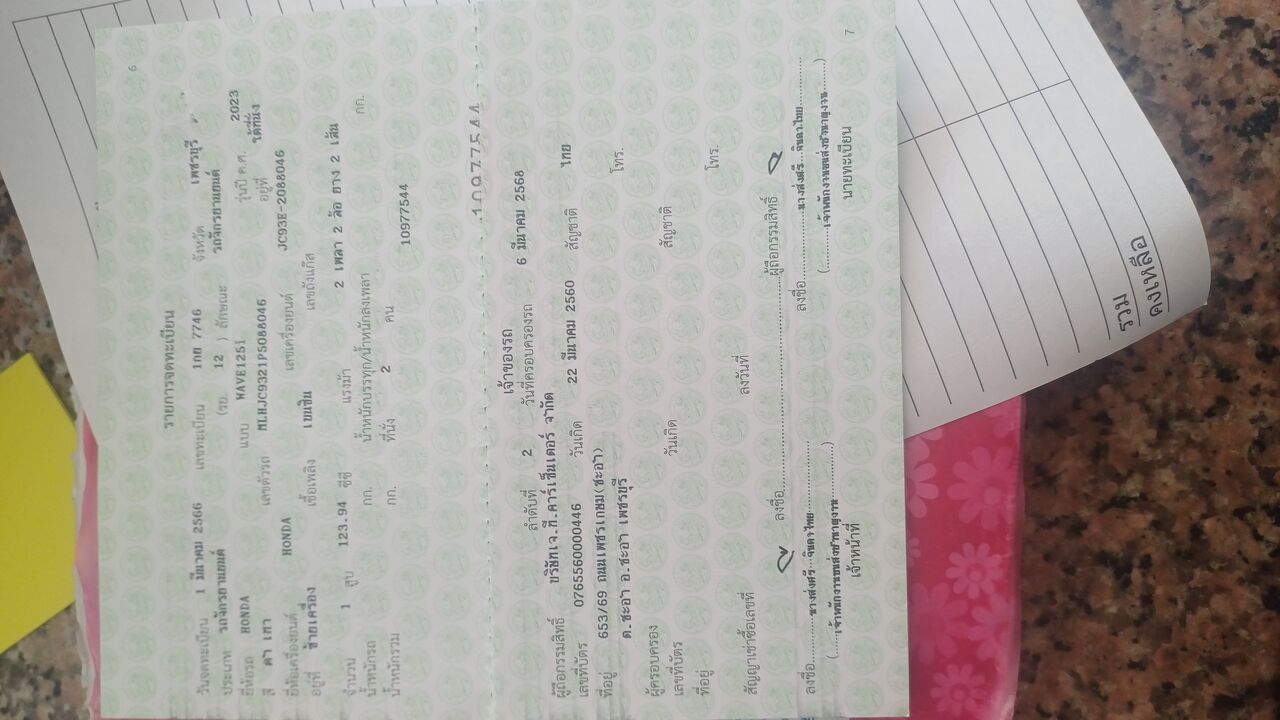 6
รายการจดทะเบียน
วันจดทะเบียน 1 มีนาคม 2566 เลขทะเบียน 1กย 7746 จังหวัด เพชรบุรี
ประเภท รถจักรยานยนต์ (รย. 12 ) ลักษณะ รถจักรยานยนต์
ยี่ห้อรถ HONDA แบบ WAVE125i รุ่นปี ค.ศ. 2023
สี ดำ เทา เลขตัวรถ MLHJC9321P5088046 อยู่ที่ ใต้ที่นั่ง
ยี่ห้อเครื่องยนต์ HONDA เลขเครื่องยนต์ JC93E-2088046
อยู่ที่ ซ้ายเครื่อง เชื้อเพลิง เบนซิน เลขถังแก๊ส
จำนวน 1 สูบ 123.94 ซีซี แรงม้า 2 เพลา 2 ล้อ ยาง 2 เส้น
น้ำหนักรถ กก. น้ำหนักบรรทุก/น้ำหนักลงเพลา กก.
น้ำหนักรวม กก. ที่นั่ง 2 คน 10977544
10977544
เจ้าของรถ
ลำดับที่ 2 วันที่ครอบครองรถ 6 มีนาคม 2568
ผู้ถือกรรมสิทธิ์ บริษัทเจ.พี.คาร์เซ็นเตอร์ จำกัด
เลขที่บัตร 0765560000446 วันเกิด 22 มีนาคม 2560 สัญชาติ ไทย
ที่อยู่ 653/69 ถนนเพชรเกษม(ชะอำ) โทร.
ต.ชะอำ อ.ชะอำ เพชรบุรี
ผู้ครอบครอง
เลขที่บัตร วันเกิด สัญชาติ
ที่อยู่ โทร.
สัญญาเช่าซื้อเลขที่ ลงวันที่
ลงชื่อ ผู้ถือกรรมสิทธิ์
ลงชื่อ ลงชื่อ
(เจ้าพนักงานขนส่งชำนาญงาน) (เจ้าพนักงานขนส่งชำนาญงาน)
เจ้าหน้าที่ นายทะเบียน
7
รวม
คงเหลือ